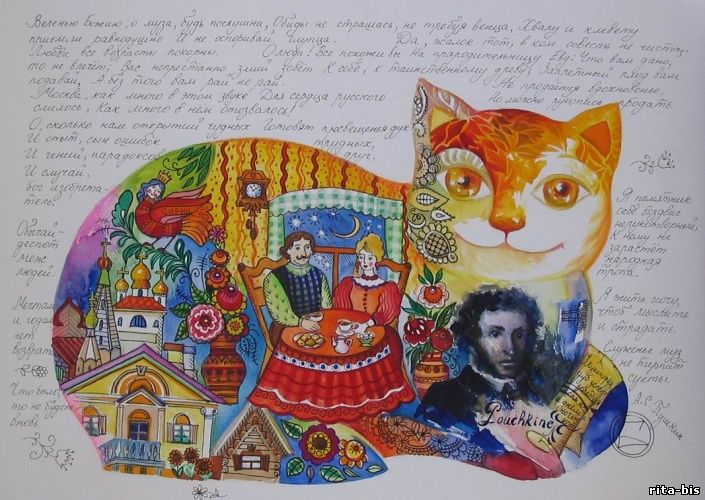 Веленью Божию, о муза, будь послушна, Обиды не страшась, не требуя венца, Хвалу и клевету
приемли равнодушно И не оспоривай глупца. Да, жалок тот, в ком совесть не чиста.
Любви все возрасты покорны. О люди! Все похожи вы На прародительницу Еву: Что вам дано,
то не влечёт; Вас непрестанно змий зовёт К себе, к таинственному древу; Запретный плод вам
подавай, А без того вам рай не рай. Не продаётся вдохновенье,
Москва, как много в этом звуке Для сердца русского Но можно рукопись продать.
слилось, Как много в нём отозвалось!
О, сколько нам открытий чудных Готовят просвещенья дух
И опыт, сын ошибок трудных,
И гений, парадоксов друг,
И случай,
бог изобрета-
тель.
Обычай-
деспот
меж
людей.
Мечтам
и годам
нет
возврата
Что было,
то не будет
вновь.
Я памятник
себе воздвиг
нерукотворный,
К нему не
зарастёт
народная
тропа.
Я жить хочу,
чтоб мыслить
и страдать.
Служенье муз
не терпит
суеты.
А.С. Пушкин
Pouchkine
rita-bis